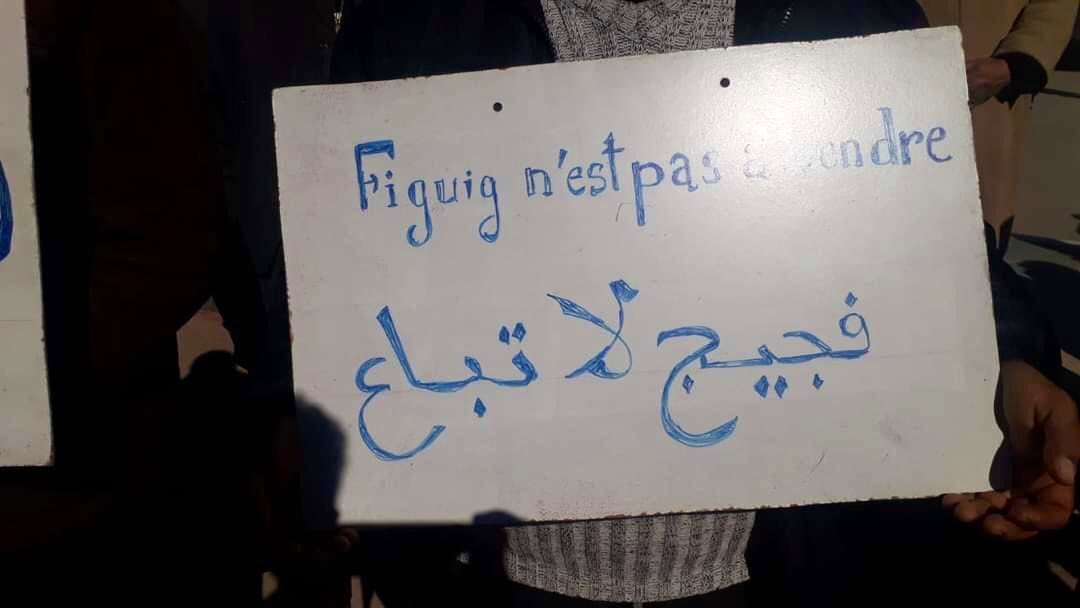 Figuig n'est pas à vendre
فجيج لا تباع